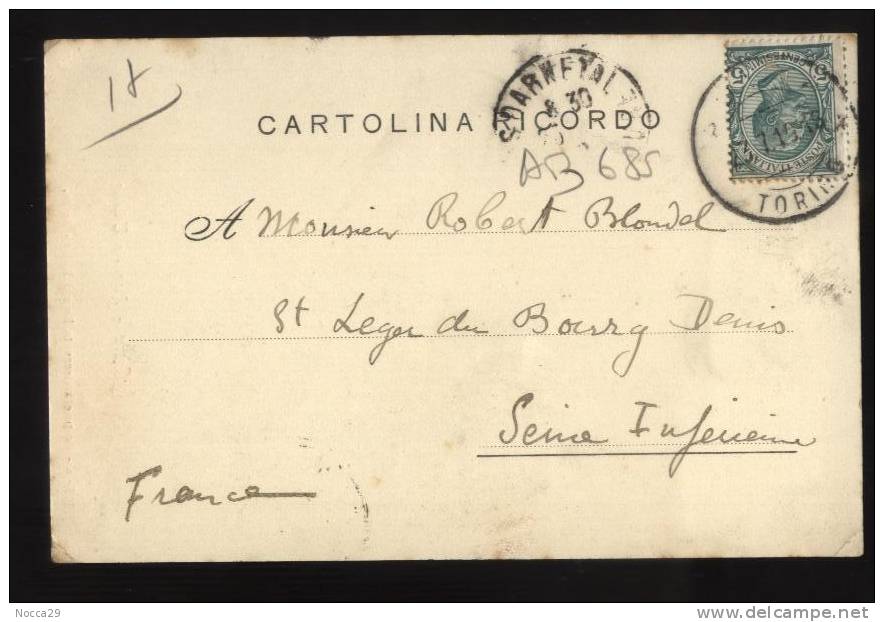 18
DARNETAL
8 30
CARTOLINA RICORDO
AB 685
5 5
POSTE ITALIANE
TORINO
A Monsieur Robert Blondel
St Leger du Bourg Denis
Seine Inferieure
France
Nocca29
delcampe.net